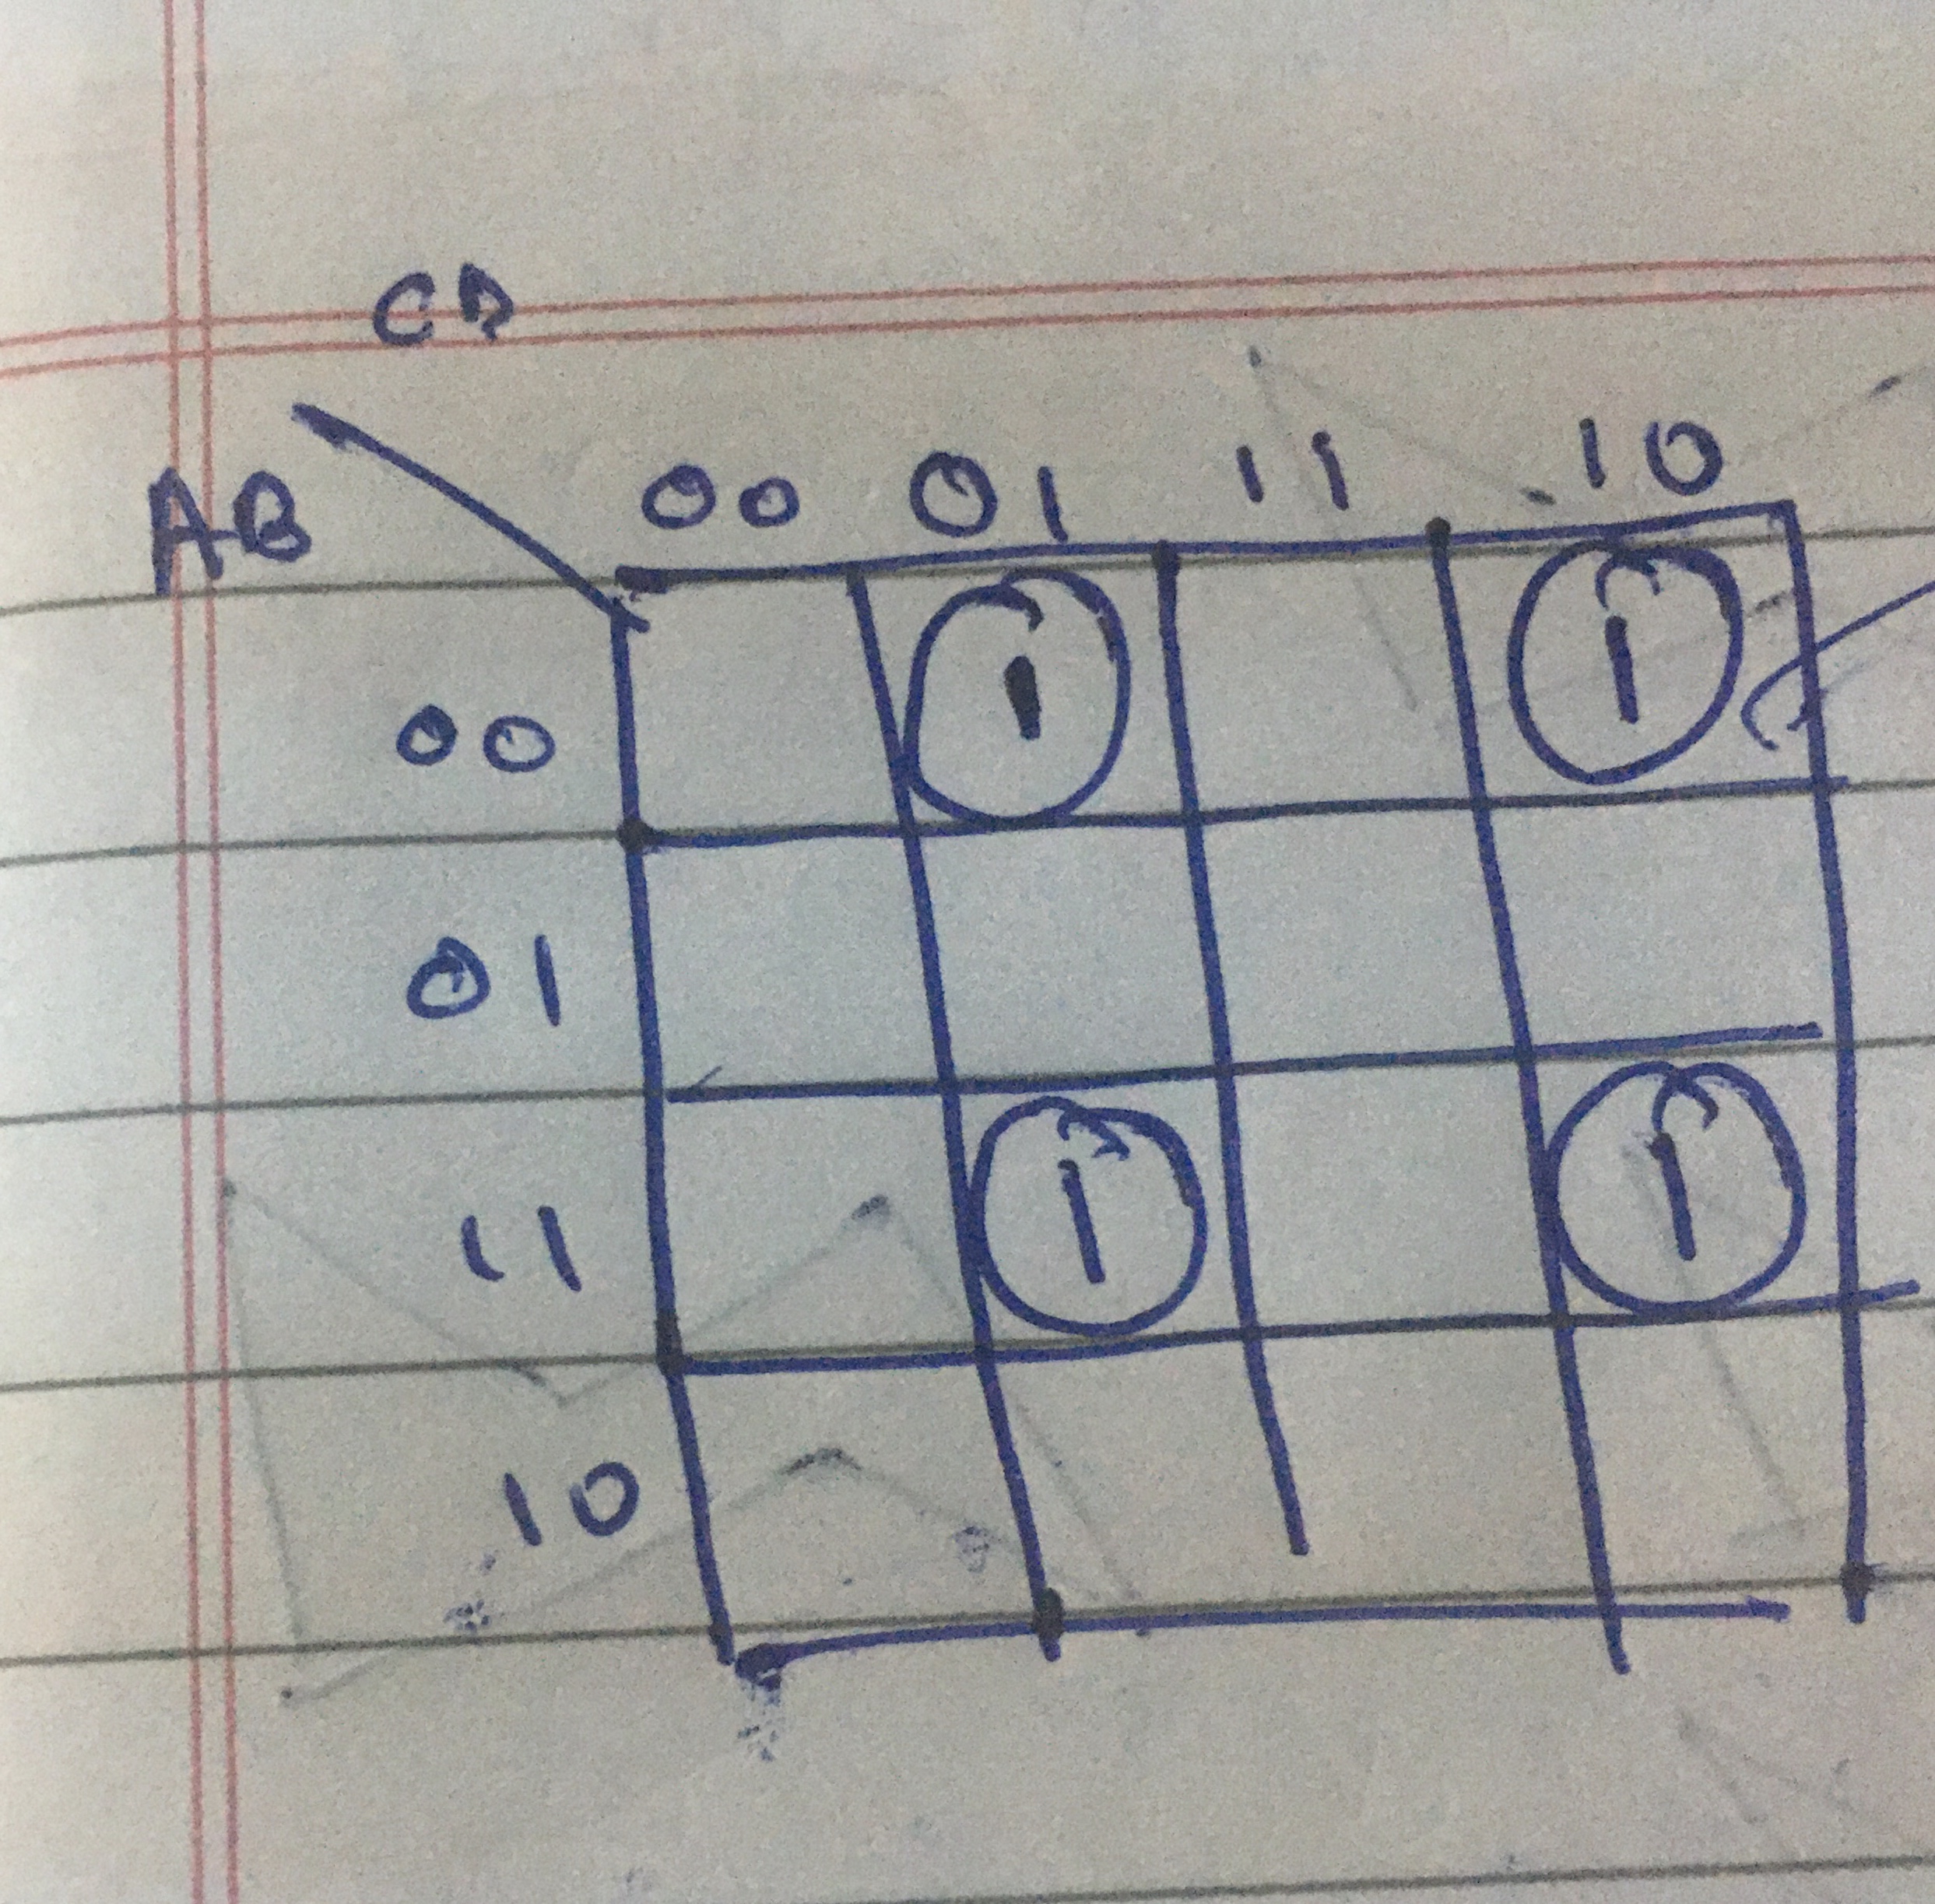 CD
AB 00 01 11 10
00 1 1
01
11 1 1
10